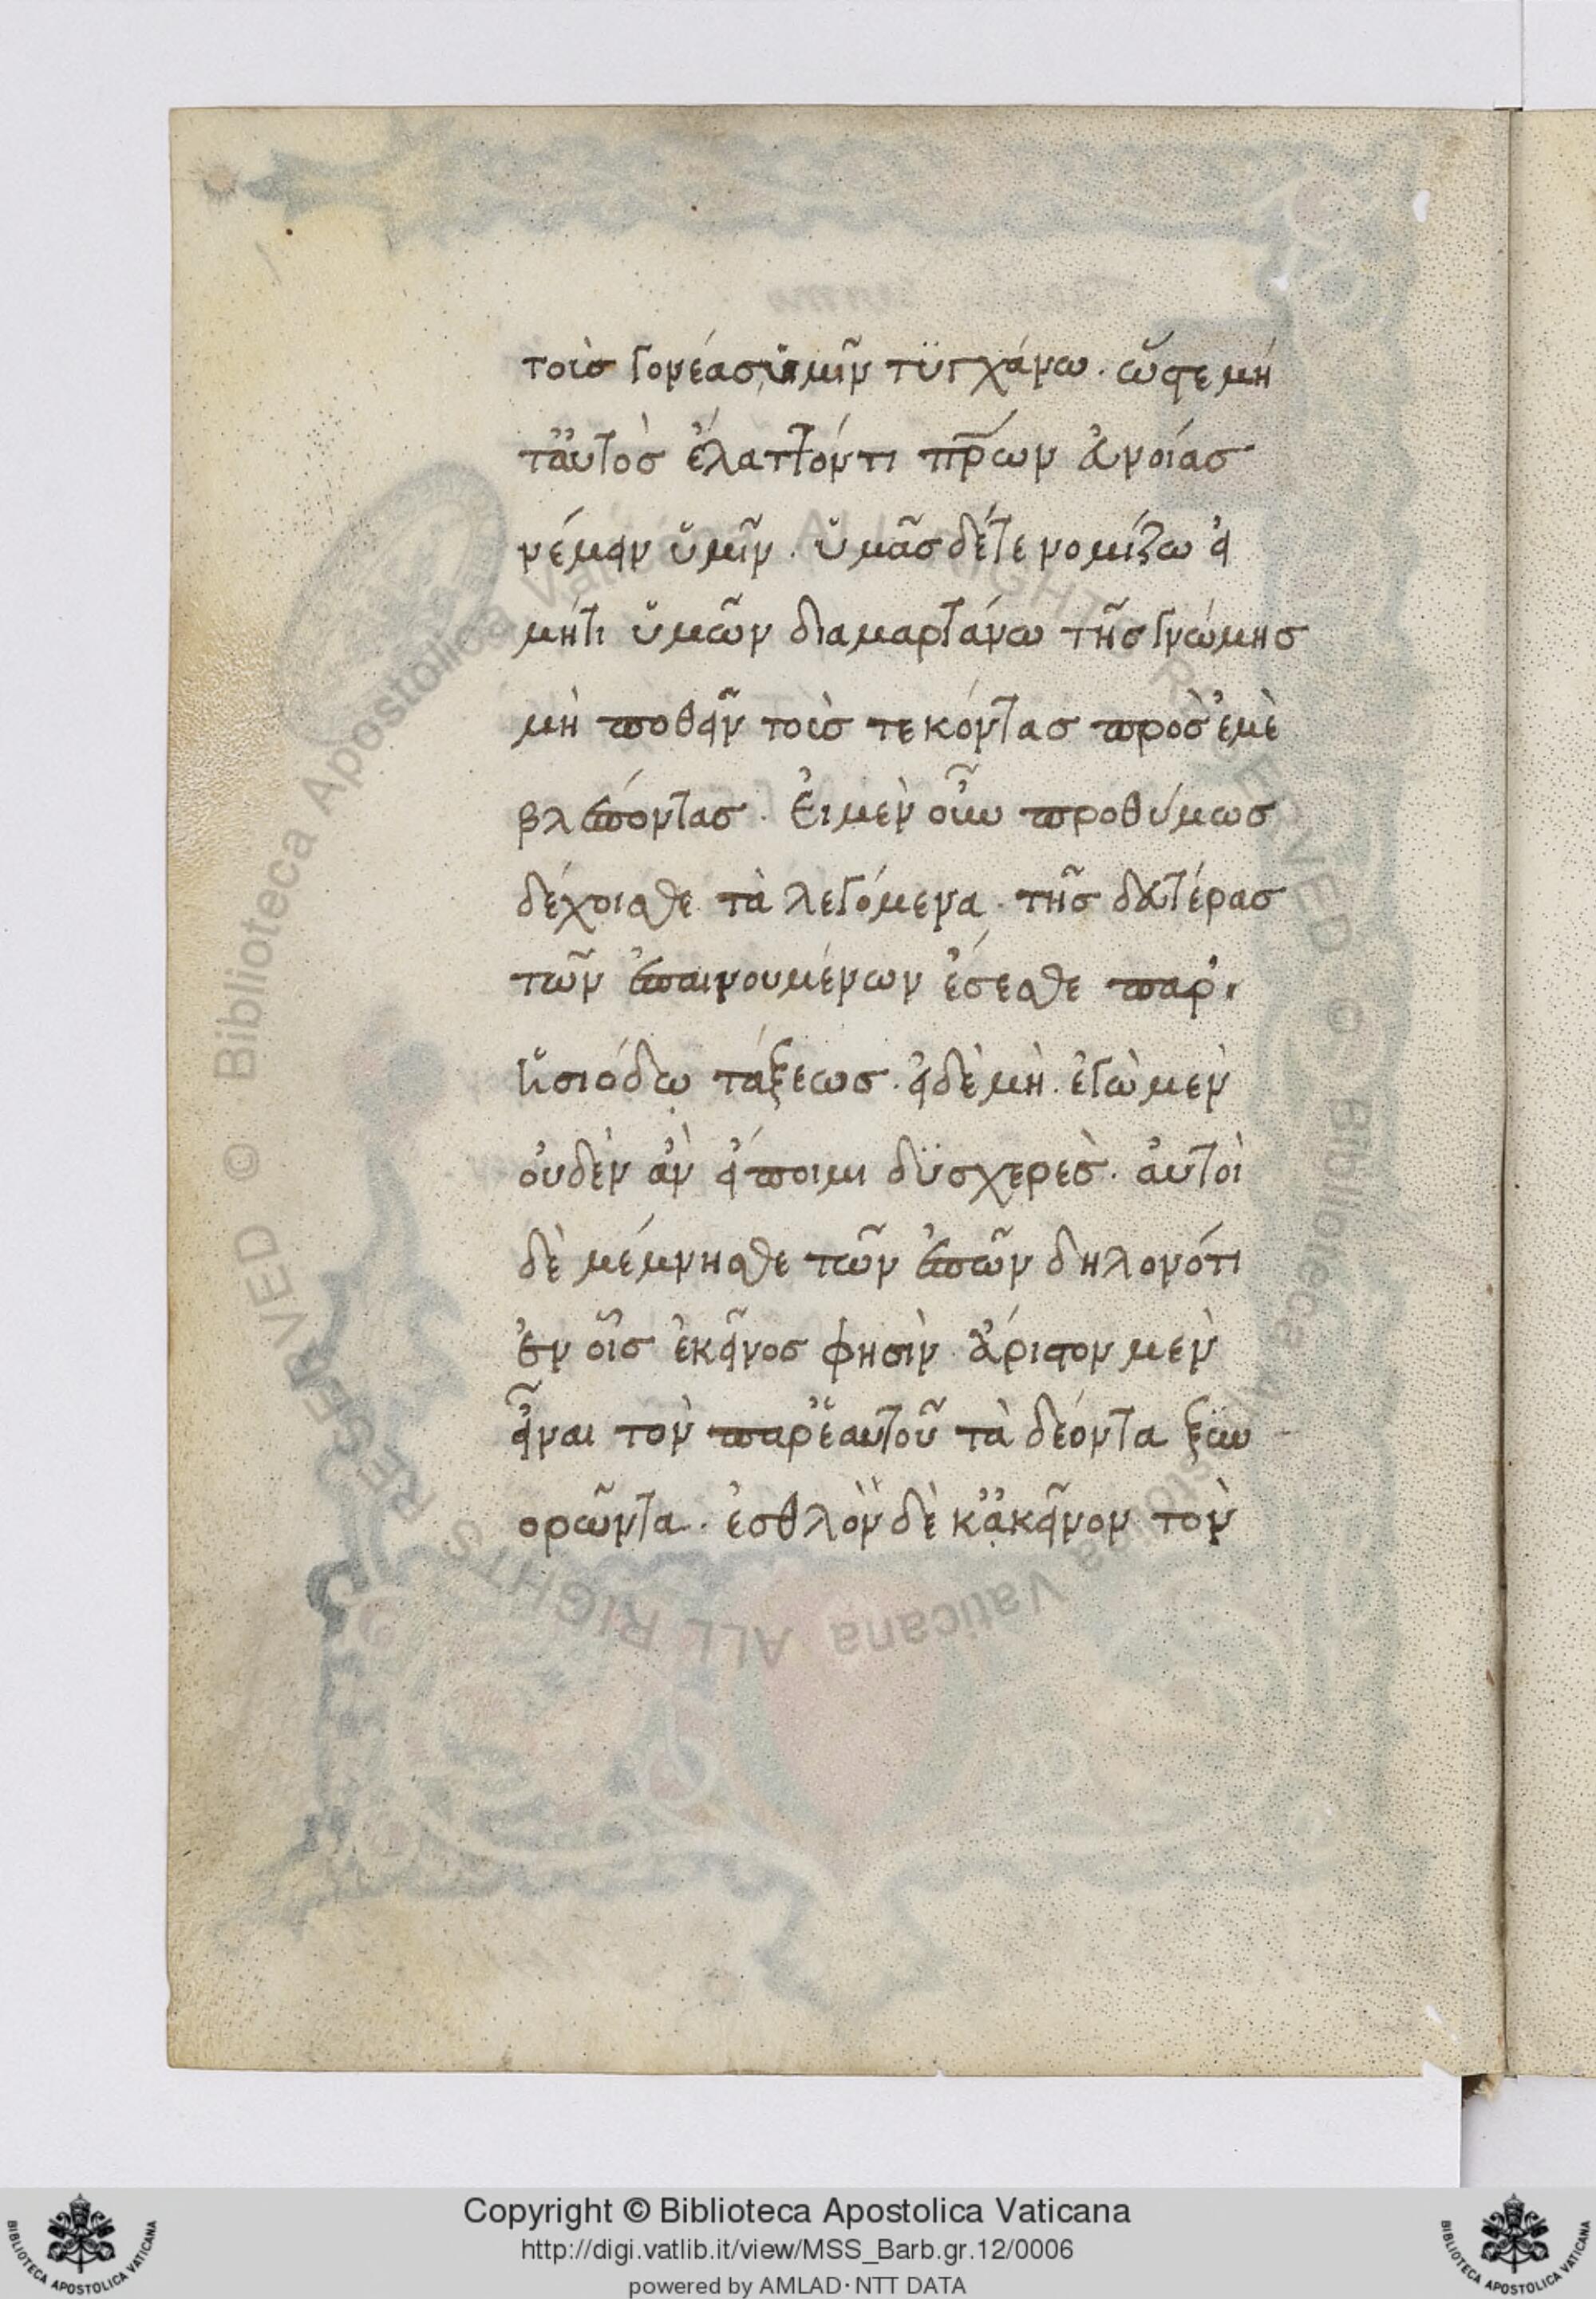 τοῖς γονέασι ὑμῖν τϋγχάνω. ὥστε μή
τ' αὐτὸς ἐλάττόντι πρ̅ων ἐυνοίας
νέμειν ὑμῖν. ὑμᾶς δέ τε νομίζω εἰ
μήτι ὑμῶν διαμαρτάνω τῆς γνώμης
μὴ ποθεῖν τοὺς τεκόντας πρὸς ἐμὲ
βλέποντας. Ἐι μὲν οὖν προθύμως
δέχοισθε τὰ λεγόμενα. τῆς δευτέρας
τῶν ἐπαινουμένων ἔσεσθε παρ'
Ἡσιόδῳ τάξεως. εἰ δὲ μὴ. ἐγὼ μὲν
ὀυδὲν ἂν εἴποιμι δϋσχερὲς. ἀυτοὶ
δὲ μέμνησθε τῶν ἐπῶν δηλονότι
ἐν οἷς ἐκεῖνος φησὶν ἄριστον μὲν
εἶναι τὸν παρ' ἑαυτοῦ τὰ δέοντα ξϋν
ορῶντα. ἐσθλὸν δὲ κἀκεῖνον τὸν
Copyright © Biblioteca Apostolica Vaticana
http://digi.vatlib.it/view/MSS_Barb.gr.12/0006
powered by AMLAD·NTT DATA